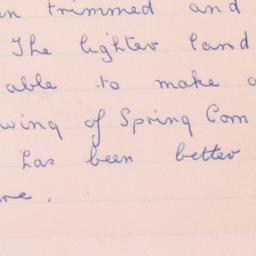 trimmed and
The lighter land
able to make a
wing of Spring Corn
has been better
re.